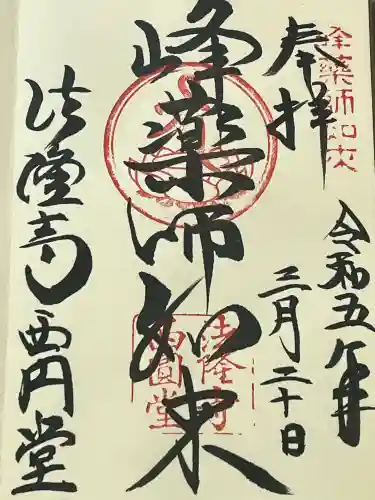 奉拝
令和五年
三月二十日
峰薬師如来
法隆寺西円堂
峯薬師如来
法隆寺
西圓堂